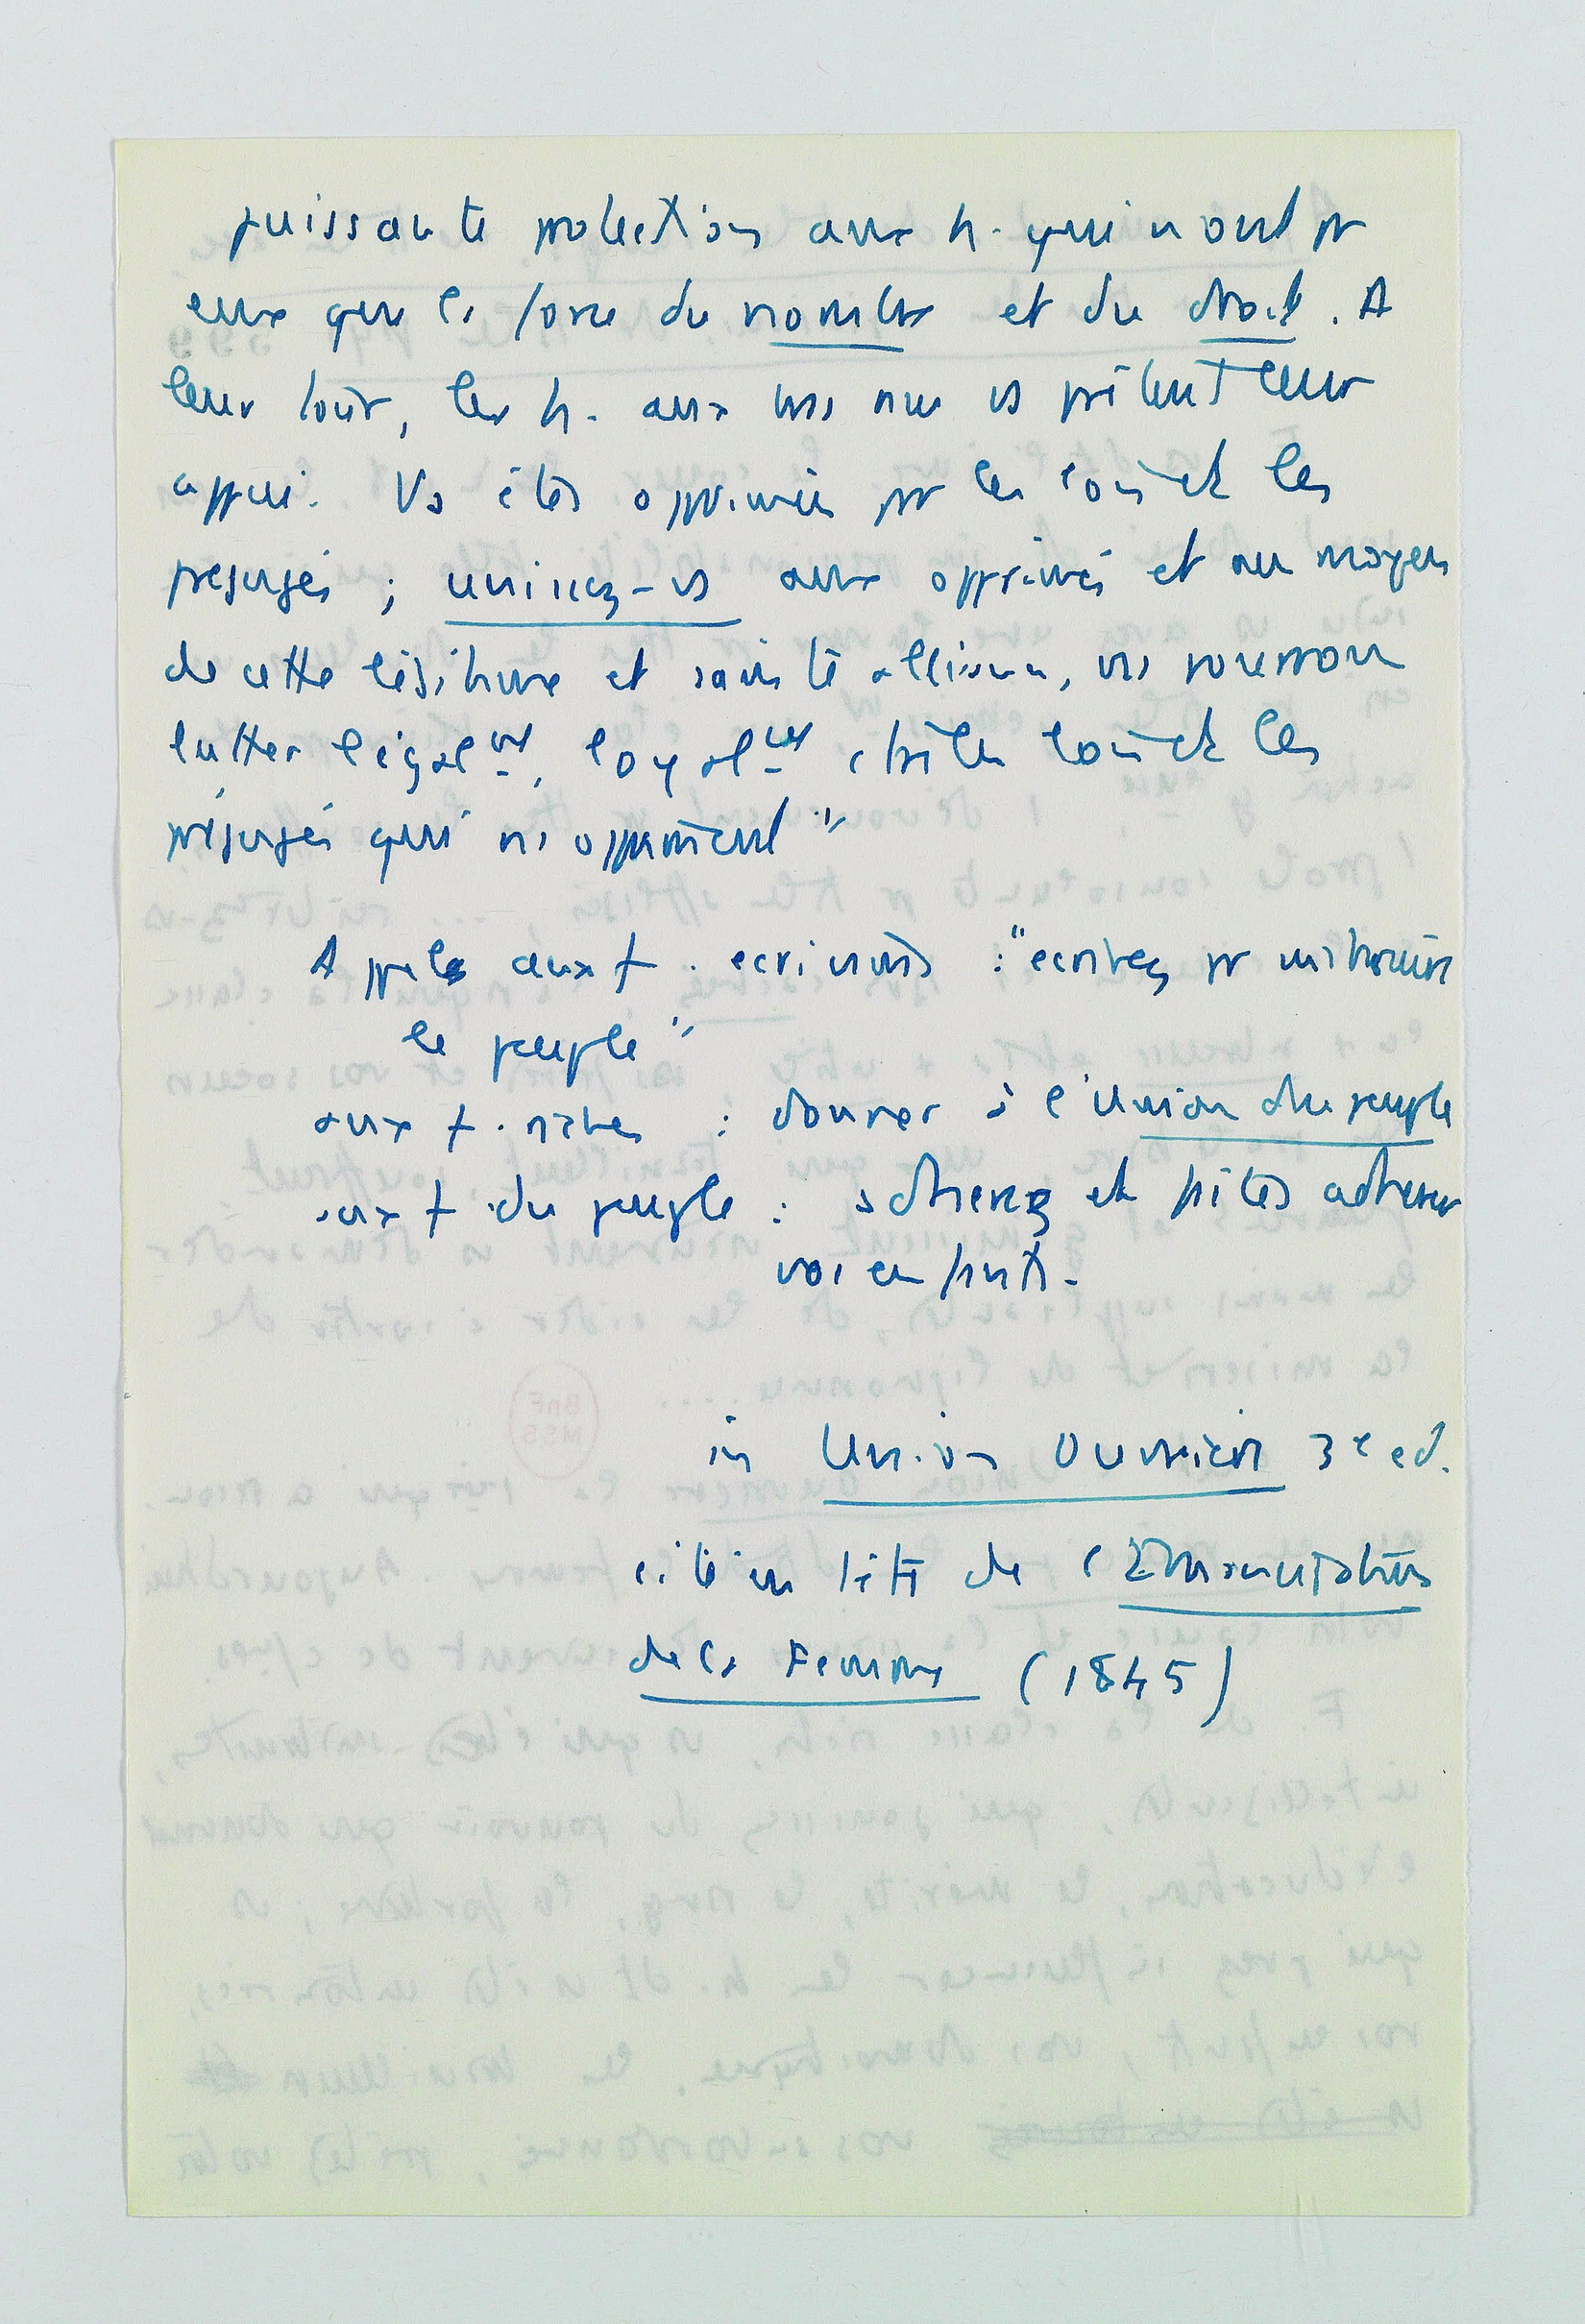 puissante protection aux h. qui n'ont pr
eux que la force du nombre et du droit. A
leur tour, les h. aux bras nus vs prêteront leur
appui. Vs êtes opprimées pr les lois et les
préjugés ; unissez-vs aux opprimés et au moyen
de cette légitime et sainte alliance, ns pourrons
lutter légalmt, loyalmt, ctre les lois et les
préjugés qui ns oppriment"
Appels aux f. écrivains : "écrivez pr instruire
le peuple"
aux f. riches : donner à l'Union du peuple
aux f du peuple : adherez et faites adherer
vos enfants.
in Union Ouvrière 3e ed.
cité in tête de l'Emancipation
de la Femme (1845)